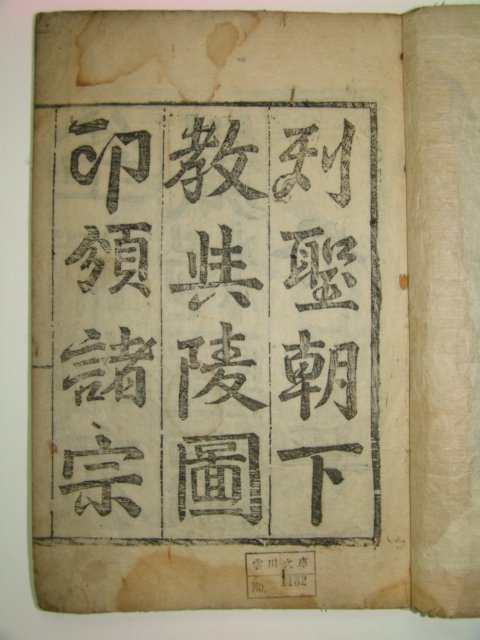 列聖朝下
教與陵圖
印頒諸宗
雲川文庫
No. 182